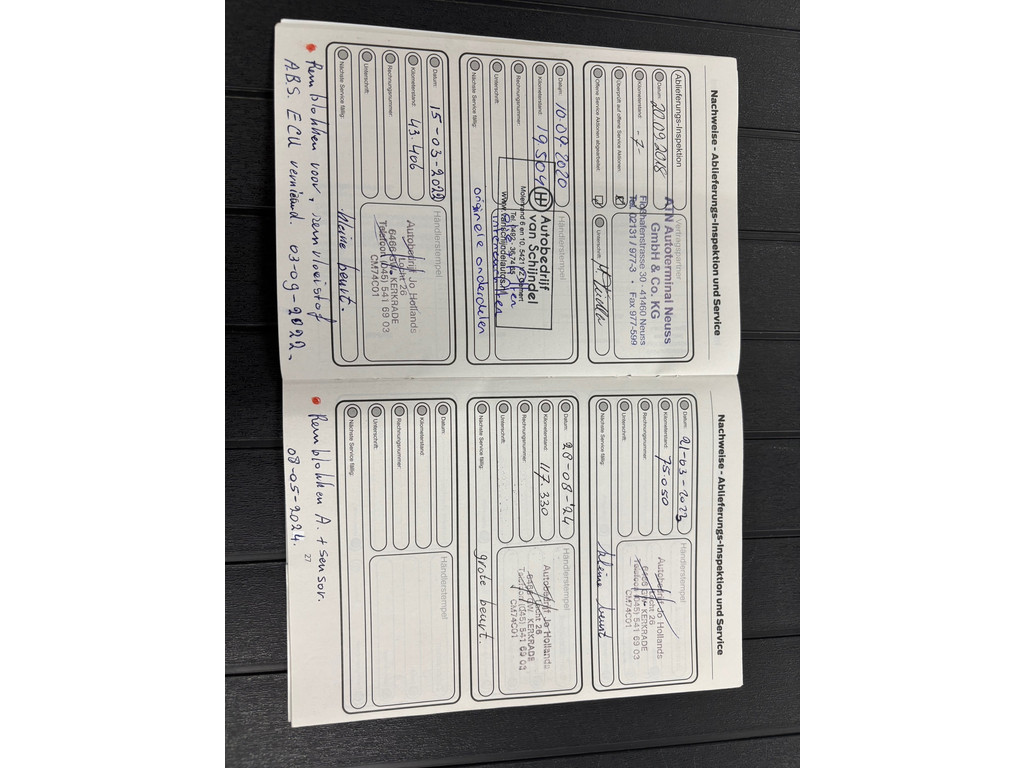 Nachweise - Ablieferungs-Inspektion und Service
Ablieferungs-Inspektion
Vertragspartner
Datum: 20.09.2018
Kilometerstand: -7-
Überprüft auf offene Service Aktionen:
Offene Service Aktionen abgearbeitet:
Unterschrift:
ATN Autoterminal Neuss
GmbH & Co. KG
Floßhafenstrasse 30 · 41460 Neuss
Tel. 02131 / 977-3 · Fax 977-599
Datum: 10.09.2020
Händlerstempel
Kilometerstand: 19504
Rechnungsnummer:
Unterschrift:
Nächste Service fällig:
Autobedrijf
van Schijndel
originele onderdelen
Datum: 15-03-2022
Händlerstempel
Kilometerstand: 43.406
Rechnungsnummer:
Unterschrift:
Nächste Service fällig: kleine beurt.
Autobedrijf Jo Hollands
Locht 26
6466 GW KERKRADE
Telefoon (045) 541 69 03
CM74C01
Remblokken voor, remvloeistof
A.B.S. ECU vernieuwd. 03-09-2022.
Nachweise - Ablieferungs-Inspektion und Service
Datum: 21-03-2023
Händlerstempel
Kilometerstand: 75.050
Rechnungsnummer:
Unterschrift:
Nächste Service fällig: kleine beurt
Autobedrijf Jo Hollands
Locht 26
6466 GW KERKRADE
Telefoon (045) 541 69 03
CM74C01
Datum: 28-08-'24
Händlerstempel
Kilometerstand: 117.330
Rechnungsnummer:
Unterschrift:
Nächste Service fällig: grote beurt.
Autobedrijf Jo Hollands
Locht 26
6466 GW KERKRADE
Telefoon (045) 541 69 03
CM74C01
Datum:
Händlerstempel
Kilometerstand:
Rechnungsnummer:
Unterschrift:
Nächste Service fällig:
Remblokken A. + sensor.
08-05-2024.
27